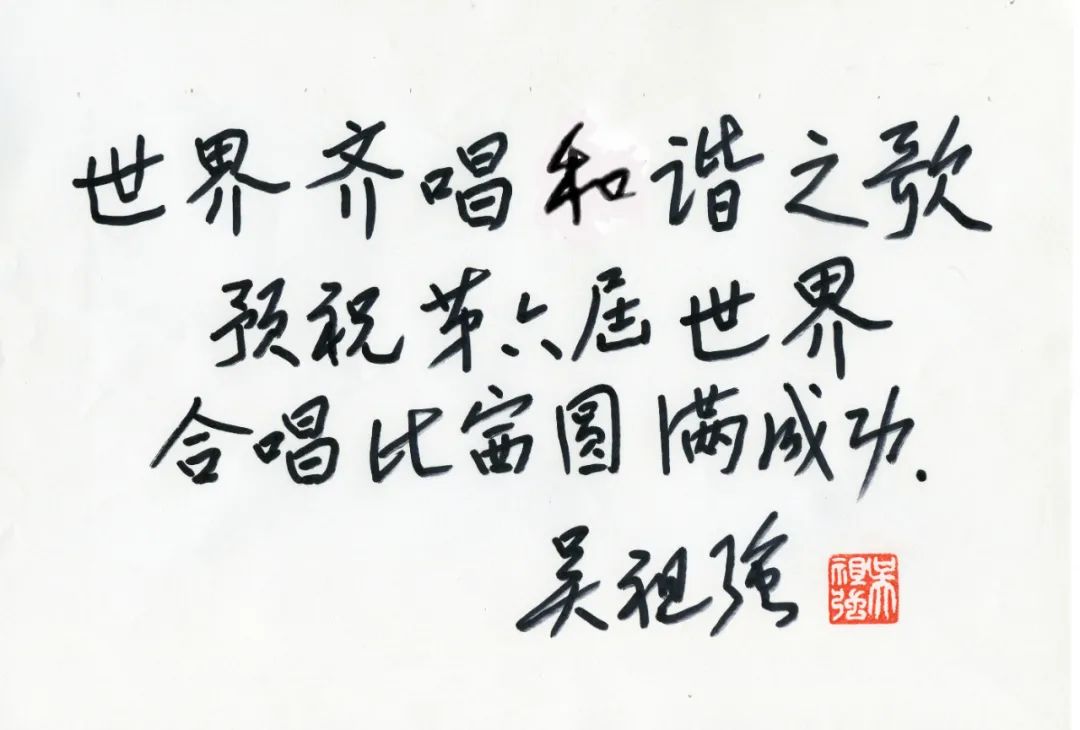 世界齐唱和谐之歌
预祝第六届世界
合唱比赛圆满成功.
吴祖强
吴祖强